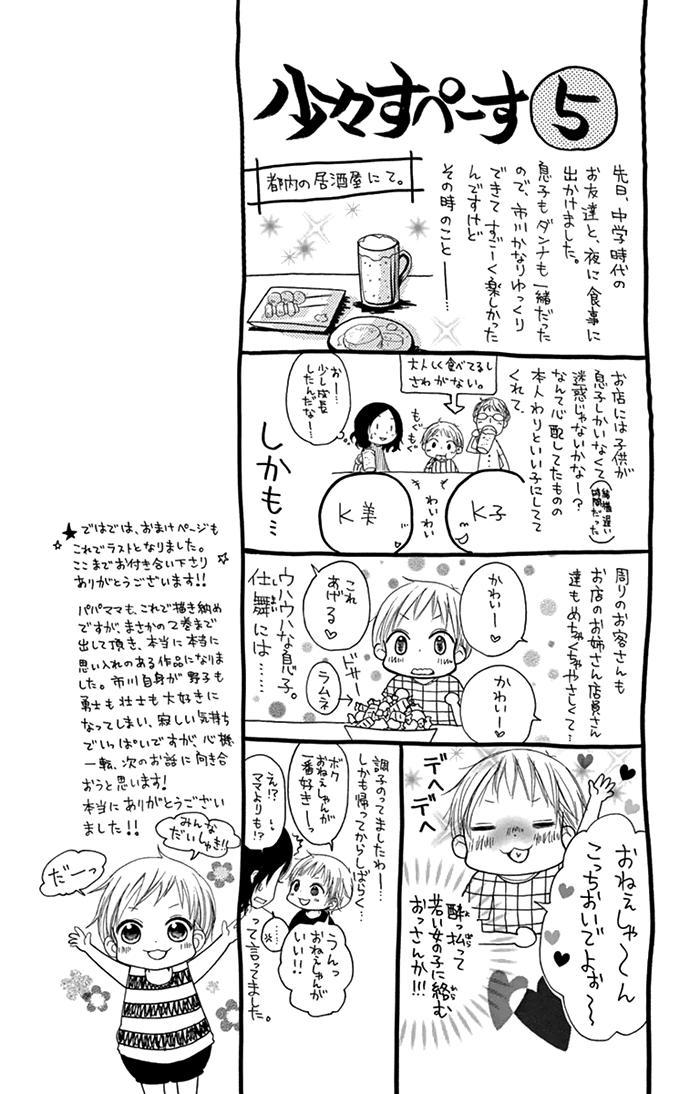 少々すぺーす
5
先日、中学時代の
お友達と、夜に食事に
出かけました。
息子もダンナも一緒だった
ので、市川かなりゆっくり
できてすごーく楽しかった
んですけど
その時のこと――…
都内の居酒屋にて。
お店には子供が
息子しかいなくて
(結構遅い
時間だった)
迷惑じゃないかなー?
なんて心配してたものの
本人わりといい子にしてて
くれて、
大人しく食べてるし
さわがない。
もぐもぐ
おー…
少し成長
したんだなー…
わいわい
K子
K美
しかも…
周りのお客さんも
お店のお姉さん店員さん
達もめちゃくちゃやさしくて…
かわいー♡
かわいー♡
これ
あげる♡
ドサー
ラムネ
ウハウハな息子。
仕舞には……
しまい
おねぇしゃ〜ん
こっちおいでよぉ〜
デヘデヘ
酔っ払って
よ ぱら
若い女の子に絡む
から
おっさんか!!!
調子のってましたわー
しかも帰ってからしばらく…
ボク
おねえしゃんが
一番好きーっ
え!?
ママよりも!?
うんっ
おねえしゃんが
いい!!
って言ってました。
★ではでは、おまけページも
これでラストとなりました。
ここまでお付き合い下さり
ありがとうございます!!
パパママも、これで描き納め
ですが、まさかの2巻まで
出して頂き、本当に本当に
思い入れのある作品になりま
した。市川自身が野子も
勇士も壮士も大好きに
なってしまい、寂しい気持ち
でいっぱいですが、心機
一転、次のお話に向き合
おうと思います!
本当にありがとうござい
ました!!
みんな
だいしゃき!!
だーっ